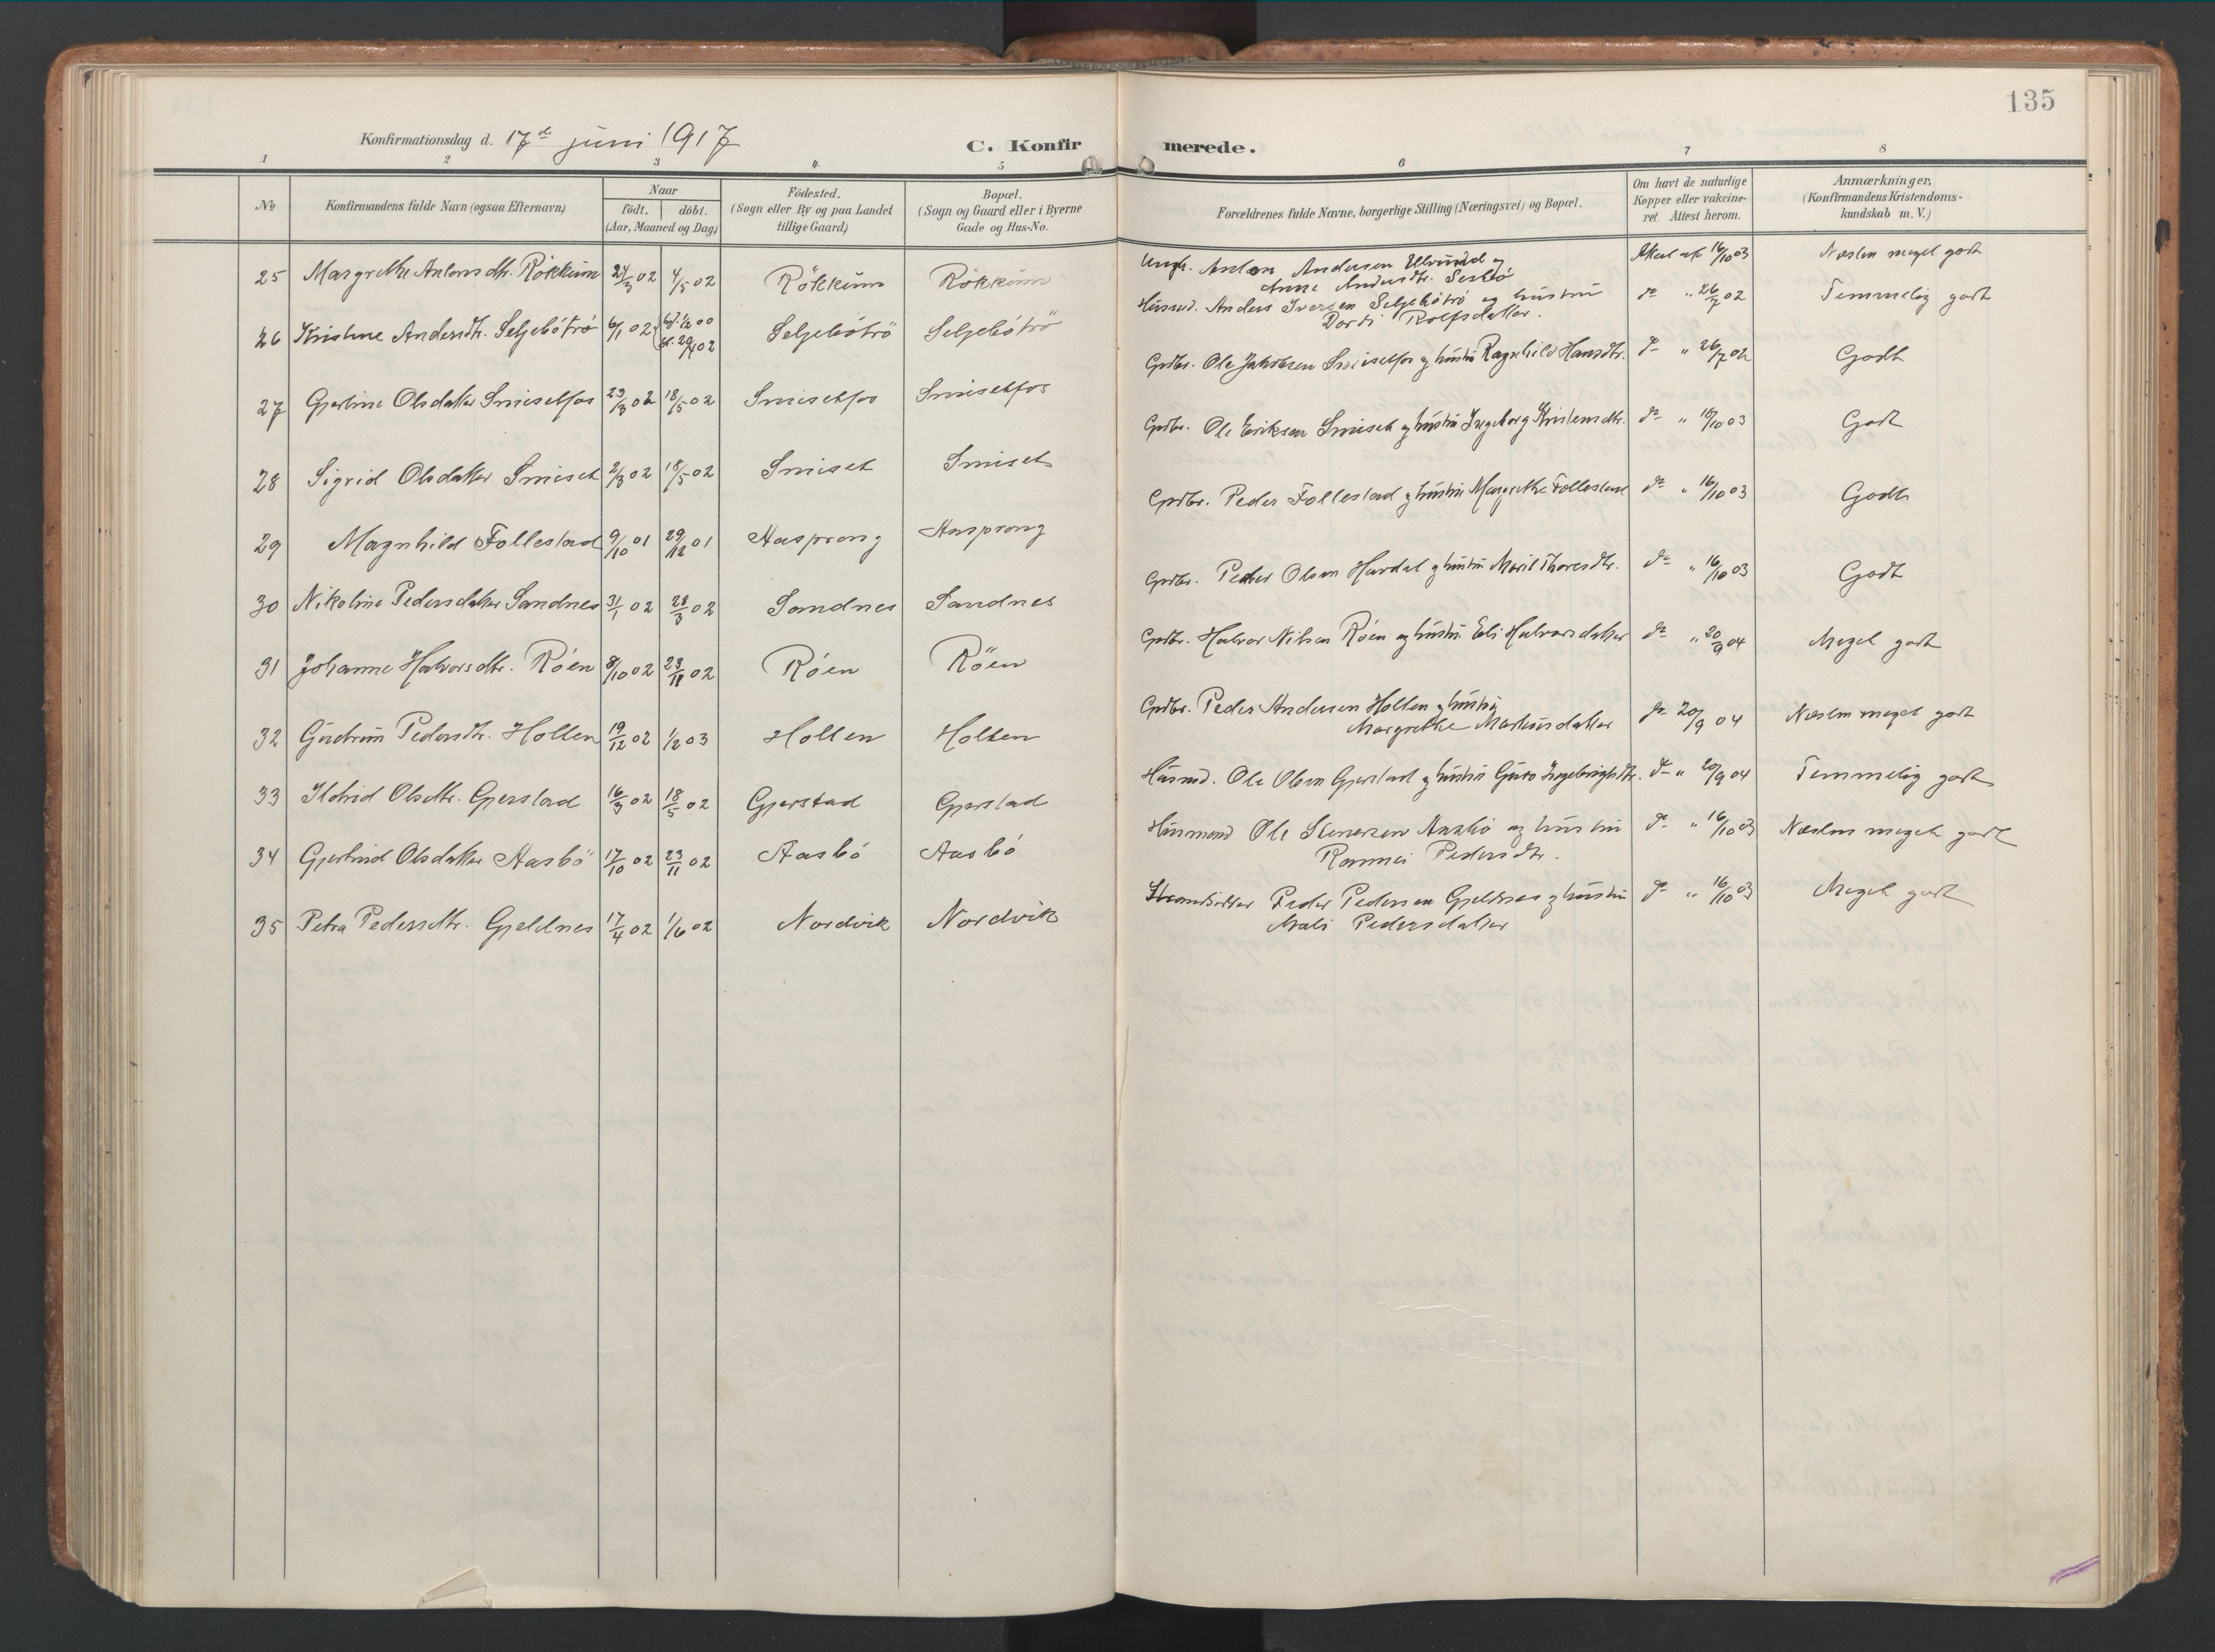 135
Konfirmationsdag d. 17de juni 1917
C. Konfirmerede.
1 2 3 4 5 6 7 8
No
Konfirmandens fulde Navn (ogsaa Efternavn)
Naar
födt. döbt.
(Aar, Maaned og Dag)
Födested.
(Sogn eller By og paa Landet
tillige Gaard)
Bopæl.
(Sogn og Gaard eller i Byerne
Gade og Hus-No.
Forældrenes fulde Navne, borgerlige Stilling (Næringsvei) og Bopæl.
Om havt de naturlige
Kopper eller vakcine-
ret Attest herom.
Anmærkninger,
(Konfirmandens Kristendoms-
kundskab m. V.)
25 Margrethe Antonsdtr. Rökkum 24/3 02 4/5 02 Rökkum Rökkum Ungk. Anton Andersen Ulvund og 16/10 03 Næsten meget godt
Anne Andersdtr. Sesbö
26 Kristine Andersdtr. Seljebötrö 6/1 02 Seljebötrö Seljebötrö Husmd. Anders Iversen Seljebötrö og hustru do " 26/7 02 Temmelig godt
Dordi Rolfsdatter.
27 Gjertine Olsdatter Smisetfos 23/3 02 18/5 02 Smisetfos Smisetfos Grdbr. Ole Jakobsen Smisetfos og hustru Ragnhild Hansdtr. do " 26/7 02 Godt
28 Sigrid Olsdatter Smiset 2/3 02 18/5 02 Smiset Smiset Grdbr. Ole Eriksen Smiset og hustru Ingeborg Kristensdtr. do " 16/10 03 Godt
29 Magnhild Follestad 9/10 01 29/12 01 Aasprong Aasprong Grdbr. Peder Follestad og hustru Margrethe Follestad do " 16/10 03 Godt
30 Nikoline Pedersdatter Sandnes 31/1 02 28/3 02 Sandnes Sandnes Grdbr. Peder Olsen Hardal og hustru Marit Thoresdtr. do " 16/10 03 Godt
31 Johanne Halvorsdtr. Röen 8/10 02 23/11 02 Röen Röen Grdbr. Halvor Nilsen Röen og hustru Eli Halvorsdatter do " 20/9 04 Meget godt
32 Gudrun Pedersdtr. Holten 19/12 02 1/2 03 Holten Holten Grdbr. Peder Andersen Holten og hustru do 20/9 04 Næsten meget godt
Margrethe Markusdatter
33 Ildrid Olsdtr. Gjerstad 16/3 02 18/5 02 Gjerstad Gjerstad Husmd. Ole Olsen Gjerstad og hustru Guro Ingebrigtsdtr. do " 20/9 04 Temmelig godt
34 Gjertrud Olsdatter Aasbö 17/10 02 23/11 02 Aasbö Aasbö Husmand Ole Stenersen Aasbö og hustru do " 16/10 03 Næsten meget godt
Ronnei Pedersdtr.
35 Petra Pedersdtr. Gjeldnes 17/4 02 1/6 02 Nordvik Nordvik Strandsidder Peder Pedersen Gjeldnes og hustru do " 16/10 03 Meget godt
Mali Pedersdatter